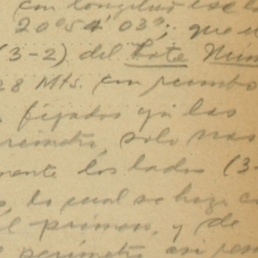 con longitud es de
20°54'03"; que u
(3-2) del Lote Núm
28 Mts. con rumbo
fijados ya los
perímetro, solo nos
mente los lados (3-
, lo cual se hace c
el primero, y de
el perímetro así